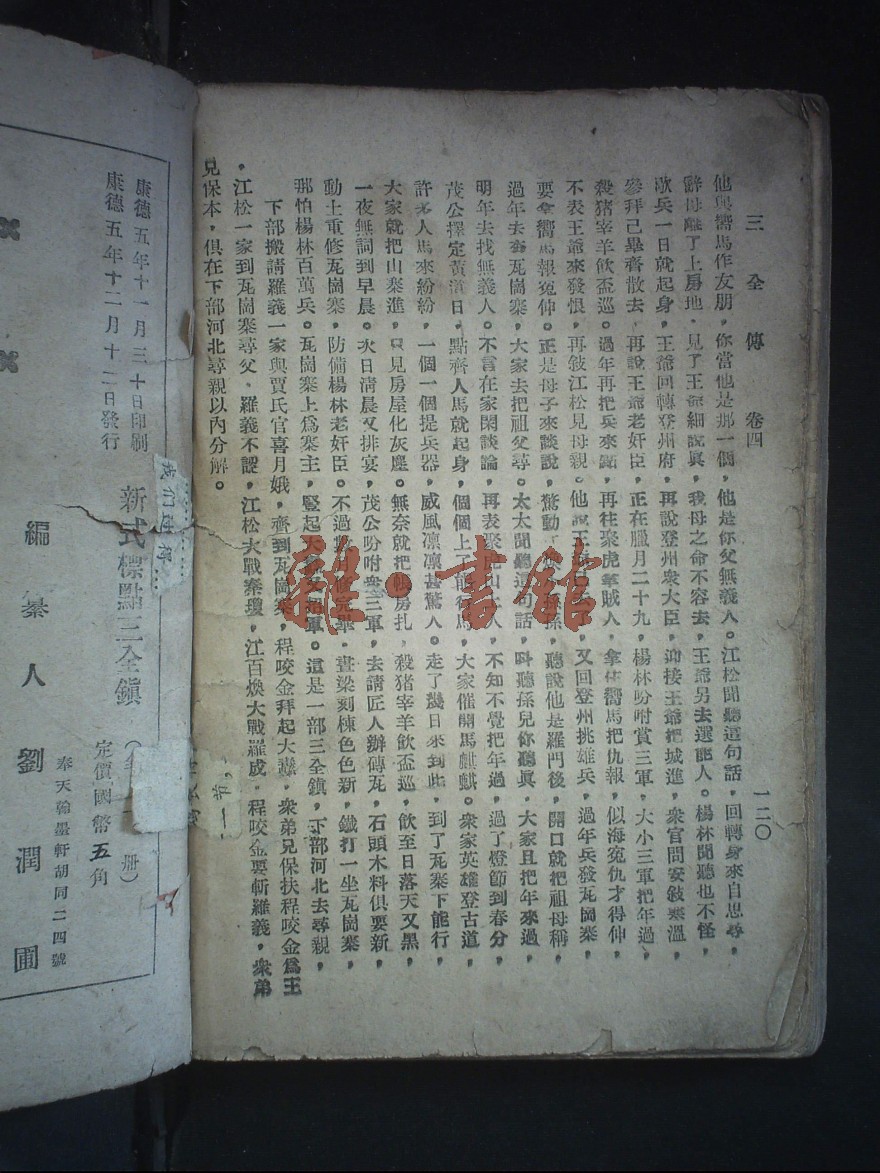 三全傳 卷四 一二〇
他與嚮馬作友朋，你當他是那一個，他是你父無義人。江松聞聽這句話，回轉身來自思尋，
辭母離了上房地，見了王爺細說眞，我母之命不容去，王爺另去選能人。楊林聞聽也不怪，
歇兵一日就起身，王爺回轉登州府，再說登州衆大臣，迎接王爺把城進，衆官問安敍寒溫，
參拜已畢齊散去，再說王爺老奸臣，正在臘月二十九，楊林吩咐賞三軍，大小三軍把年過，
殺猪宰羊飲盃巡。過年再把兵來點，再往聚虎拿賊人，拿住嚮馬把仇報，似海寃仇才得伸，
不表王爺來發恨，再敍江松見母親。他說王爺，又回登州挑雄兵，過年兵發瓦崗寨，
要拿嚮馬報寃仲。正是母子來談說，驚動，聽說他是羅門後，開口就把祖母稱，
過年去奔瓦崗寨，大家去把祖父尋。太太聞聽這句話，叫聽孫兒你聽眞，大家且把年來過，
明年去找無義人。不言在家閑談論，再表聚虎山，不知不覺把年過，過了燈節到春分，
茂公擇定黃道日，點齊人馬就起身，個個上了能行馬，大家催開馬麒麒。衆家英雄登古道，
許多人馬來紛紛，一個一個提兵器，威風凛凛甚驚人。走了幾日來到此，到了瓦寨下能行，
大家就把山寨進，只見房屋化灰塵。無奈就把帳房扎，殺猪宰羊飲盃巡，飲至日落天又黑，
一夜無詞到早晨。次日淸晨又排宴，茂公吩咐衆三軍，去請匠人辦磚瓦，石頭木料俱要新，
動土重修瓦崗寨，防備楊林老奸臣。不過，晝梁刻棟色色新，鐵打一坐瓦崗寨，
那怕楊林百萬兵。瓦崗寨上爲寨主，豎起大。這是一部三全鎭，下部河北去尋親，
下部搬請羅義一家與賈氏官喜月娥，齊到瓦崗寨，程咬金拜起大纛，衆弟兄保扶程咬金爲王
，江松一家到瓦崗寨尋父，羅義不認，江松大戰秦瓊，江百煥大戰羅成，程咬金要斬羅義，衆弟
兄保本，俱在下部河北尋親以內分解。
雜·書館
康德五年十一月三十日印刷
康德五年十二月十二日發行
新式標點三全鎭
册）
定價國幣五角
編纂人劉潤圃
奉天翰墨軒胡同二四號